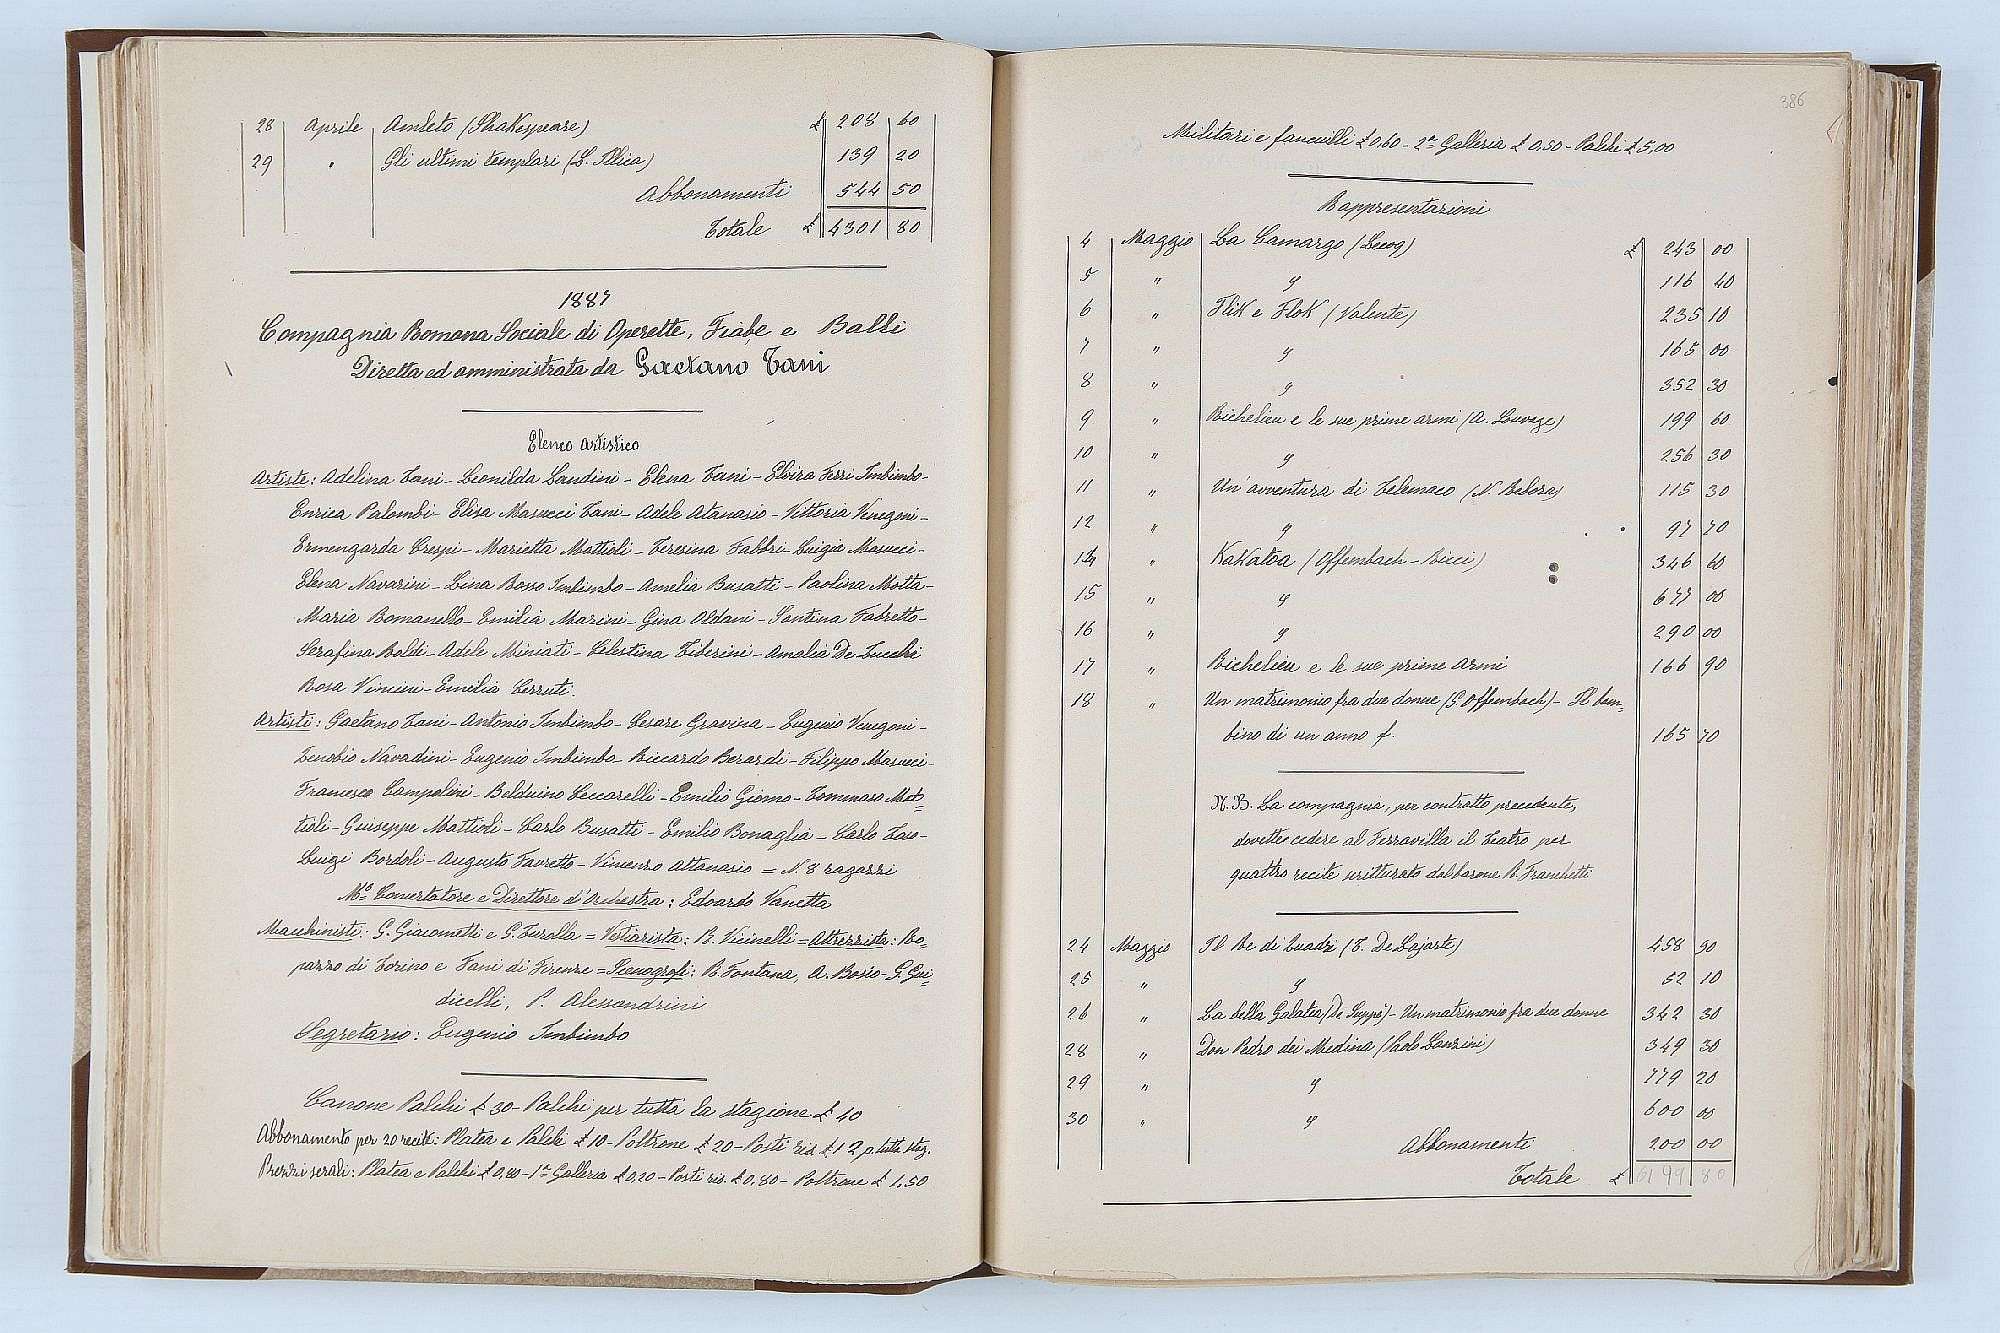 28 Aprile Amleto (Shakespeare) £ 208 60
29 " Gli ultimi templari (L. Illica) 139 20
Abbonamenti 544 50
Totale £ 4301 80
1887
Compagnia Romana Sociale di Operette, Fiabe e Balli
Diretta ed amministrata da Gaetano Tani
Elenco Artistico
Artiste: Adelina Tani - Leonilda Landini - Elena Tani - Elvira Ferri Imbimbo -
Enrica Palombi - Elisa Masucci Tani - Adele Atanasio - Vittoria Venegoni -
Ermengarda Crespi - Marietta Mattioli - Teresina Fabbri - Luigia Masucci -
Elena Navarini - Lina Rosso Imbimbo - Amelia Busatti - Paolina Motta -
Maria Romanello - Emilia Marini - Gina Oldani - Santina Fabretto -
Serafina Boldi - Adele Miniati - Celestina Tiberini - Amalia De Lucchi
Rosa Vincini - Emilia Cerruti.
Artisti: Gaetano Tani - Antonio Imbimbo - Cesare Gravina - Eugenio Venegoni -
Zenobio Navadini - Eugenio Imbimbo - Riccardo Berardi - Filippo Masucci -
Francesco Campolini - Belduino Ceccarelli - Emilio Giorno - Tommaso Mat=
tioli - Giuseppe Mattioli - Carlo Busatti - Emilio Bonaglia - Carlo Zoio -
Luigi Bordoli - Augusto Favretto - Vincenzo Attanasio = N. 8 ragazzi
Mo. Concertatore e Direttore d'Orchestra: Edoardo Vanetta
Macchinisti: G. Giacometti e G. Zurolla = Vestiarista: B. Vicinelli = Attrezzista: Ro-
pazzo di Torino e Tani di Firenze = Scenografi: B. Fontana, A. Bosio - G. Giu-
dicelli, P. Alessandrini
Segretario: Eugenio Imbimbo
Canone Palchi £ 30 - Palchi per tutta la stagione £ 40
Abbonamento per 20 recite: Platea e Palchi £ 10 - Poltrone £ 20 - Posti ris. £ 12 p. tutta stag.
Prezzi serali: Platea e Palchi £ 0,80 - 1a Galleria £ 0,20 - Posti ris. £ 0,80 - Poltrone £ 1,50
386
Militari e fanciulli £ 0,60 - 2a Galleria £ 0,50 - Palchi £ 5,00
Rappresentazioni
4 Maggio La Camargo (Lecoq) £ 243 00
5 " " 116 40
6 " Flik e Flok (Valente) 235 10
7 " " 165 00
8 " " 352 30
9 " Richelieu e le sue prime armi (A. Louvage) 199 60
10 " " 256 30
11 " Un' avventura di Telemaco (N. Rebora) 115 30
12 " " 97 70
14 " Kakatoa (Offembach - Ricci) 346 60
15 " " 677 00
16 " " 290 00
17 " Richelieu e le sue prime armi 166 90
18 " Un matrimonio fra due donne (G. Offembach) - Il bam-
bino di un anno f. 165 70
N.B. La compagnia, per contratto precedente,
dovette cedere al Ferravilla il teatro per
quattro recite scritturato dal barone R. Franchetti
24 Maggio Il Re di Quadri (T. De Lajarte) 458 90
25 " " 52 10
26 " La bella Galatea (De Suppé) - Un matrimonio fra due donne 342 30
28 " Don Pedro dei Medina (Paolo Lanzini) 349 30
29 " " 779 20
30 " " 600 00
Abbonamenti 200 00
Totale £ 6199 80